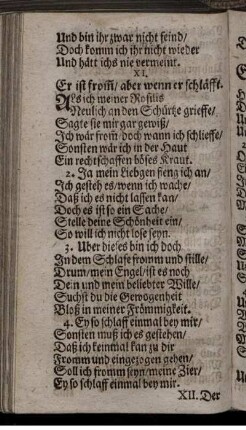 Und bin ihr zwar nicht feind/
Doch komm ich ihr nicht wieder
Und hätt ichs nie vermeint.
XI.
Er ist from̃/ aber wenn er schläfft.
Als ich meiner Rosilis
Neulich an den Schürtze grieffe/
Sagte sie mir gar gewiß/
Ich wär from̃ doch wann ich schlieffe/
Sonsten wär ich in der Haut
Ein rechtschaffen böses Kraut.
2. Ja mein Liebgen fieng ich an/
Ich gesteh es/wenn ich wache/
Daß ich es nicht lassen kan/
Doch es ist so ein Sache/
Stelle deine Schönheit ein/
So will ich nicht lose seyn.
3. Uber dieses bin ich doch
In dem Schlafe fromm und stille/
Drum/mein Engel/ist es noch
Dein und mein beliebter Wille/
Suchst du die Gewogenheit
Bloß in meiner Frömmigkeit.
4. Ey so schlaff einmal bey mir/
Sonsten muß ich es gestehen/
Daß ich keinmal kan zu dir
Fromm und eingezogen gehen/
Soll ich fromm seyn/meine Zier/
Ey so schlaff einmal bey mir.
XII. Der